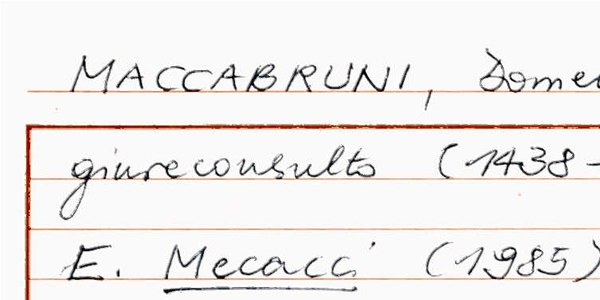 MACCABRUNI, Dome
giureconsulto (1438-
E. Mecacci (1985)